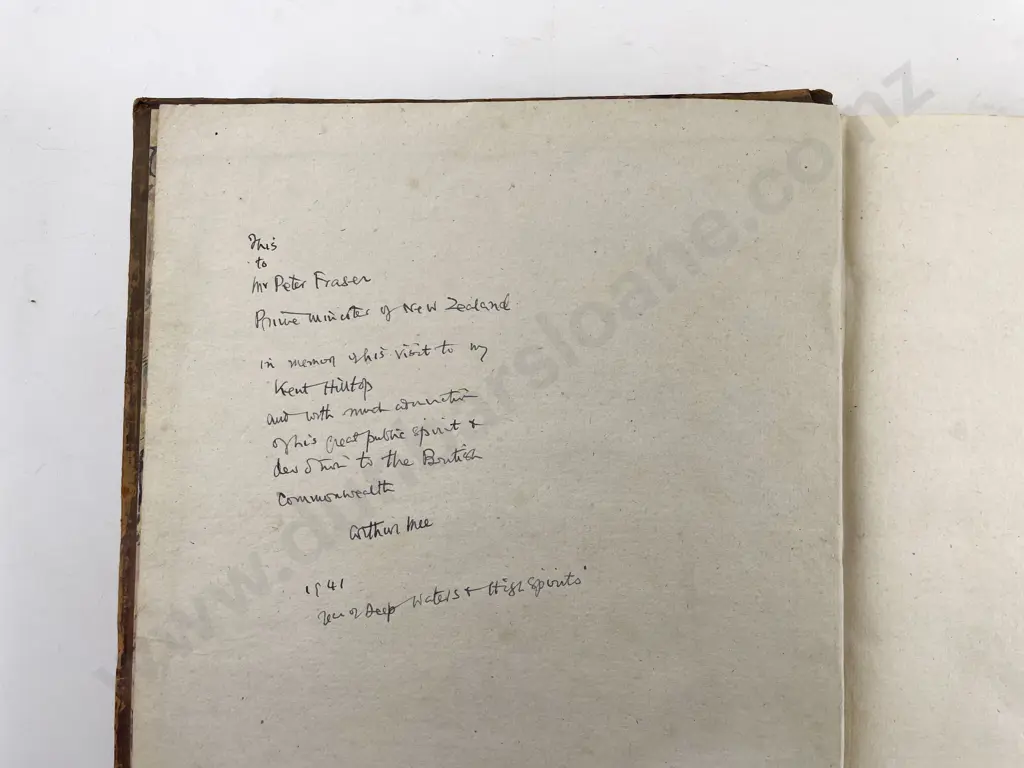 This
to
Mr Peter Fraser
Prime Minister of New Zealand
in memory of his visit to my
Kent Hilltop
and with much admiration
of his great public spirit &
devotion to the British
Commonwealth
Arthur Mee
1941
Year of Deep Waters & High Spirits
www.dunbarsloane.co.nz